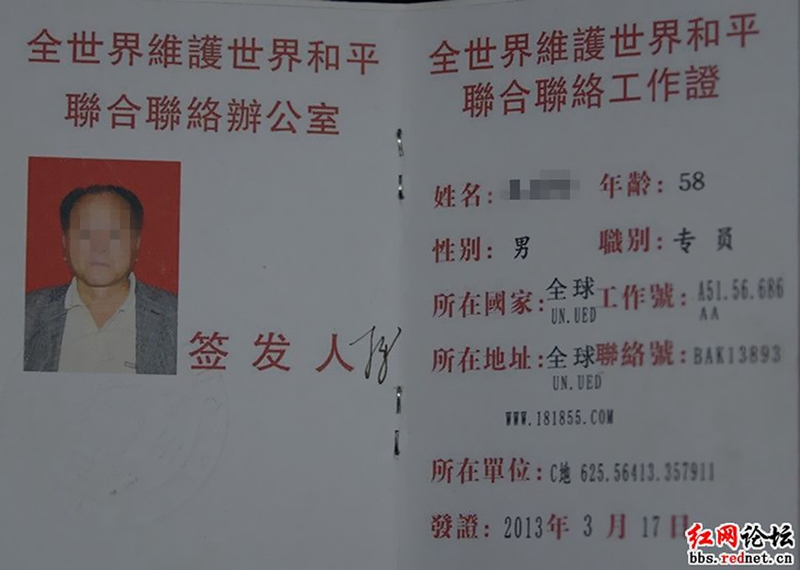 全世界維護世界和平
聯合聯絡辦公室
签发人
全世界維護世界和平
聯合聯絡工作證
姓名: 年齡: 58
性别: 男 職别: 专员
所在國家: 全球 UN.UED 工作號: A51.56.686 AA
所在地址: 全球 UN.UED 聯絡號: BAK13893
WWW.181855.COM
所在單位: C地 625.56413.357911
發證: 2013年 3 月 17日
红网论坛
bbs.rednet.cn